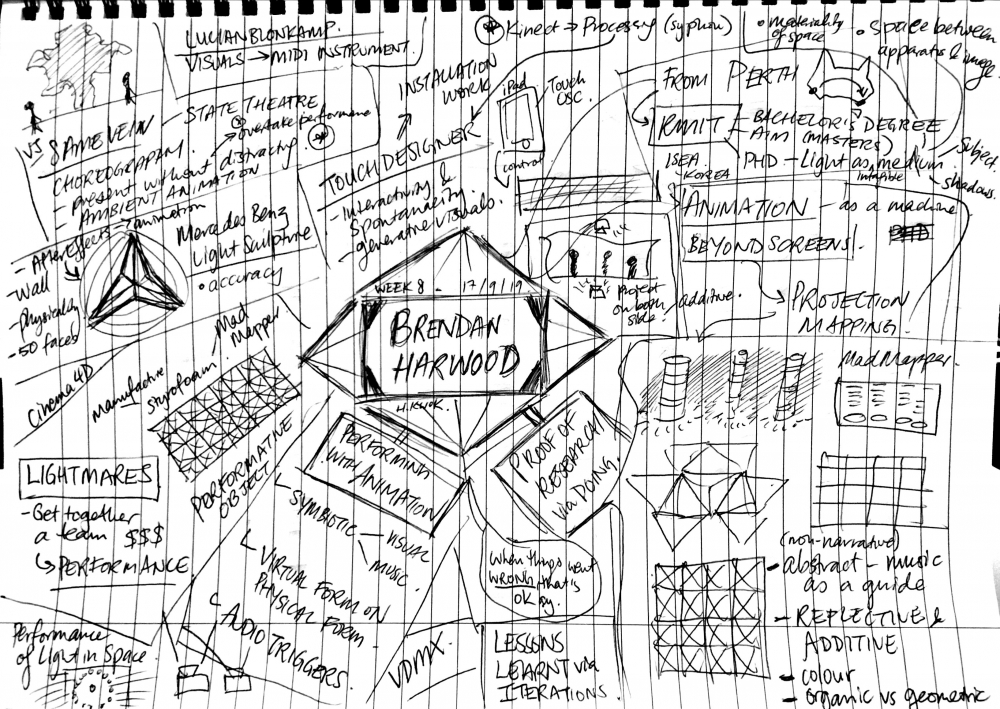 LUCIAN BLONKAMP
VISUALS → MIDI INSTRUMENT.
Kinect → Processing (syphon)
• Materiality of space
• Space between
apparatus & image
VJ
SAME VEIN
- STATE THEATRE
→ overtake performance
CHOREOGRAPHY.
- Present without distracting
- AMBIENT ANIMATION
- After effects → animation
- Wall
- physicality
- 50 faces
Mercedes Benz
Light Sculpture
• accuracy
INSTALLATION
WORK
TOUCH DESIGNER
- Interactivity &
spontaneity
- generative visuals.
iPad
Touch
OSC.
control
FROM PERTH
RMIT
- BACHELOR'S DEGREE
- AIM (MASTERS)
- PHD - Light as medium.
intangible
ISEA
- KOREA
Subject.
shadows.
ANIMATION - as a machine
BEYOND SCREENS.
PROJECTION
MAPPING.
Project
on both
side.
additive.
WEEK 8 17/9/19
BRENDAN
HARWOOD
H.KWOK.
Cinema 4D
Manufactive
Styrofoam.
Mad
Mapper
PERFORMATIVE
OBJECT
MadMapper.
LIGHTMARES
- Get together
a team $$$
↳ PERFORMANCE
PERFORMING
WITH ANIMATION
SYMBIOTIC
- VISUAL
- MUSIC.
VIRTUAL FORM ON
PHYSICAL FORM.
AUDIO TRIGGERS.
PROOF OF
RESEARCH
via DOING.
When things went
WRONG, that's
OK
VDMX.
LESSONS
LEARNT via
ITERATIONS.
(non-narrative)
- abstract - music
as a guide
- REFLECTIVE &
ADDITIVE
- colour
- organic vs geometric
Performance
of Light in Space.